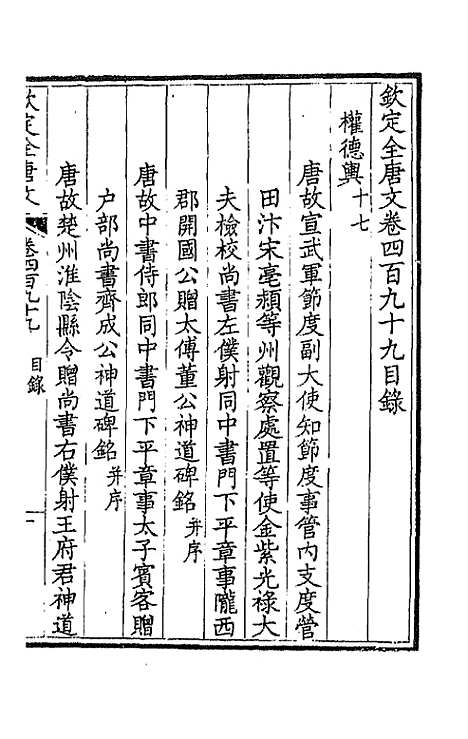 欽定全唐文卷四百九十九目錄
權德輿十七
唐故宣武軍節度副大使知節度事管內支度營
田汴宋亳潁等州觀察處置等使金紫光祿大
夫檢校尚書左僕射同中書門下平章事隴西
郡開國公贈太傅董公神道碑銘并序
唐故中書侍郎同中書門下平章事太子賓客贈
户部尚書齊成公神道碑銘并序
唐故楚州淮陰縣令贈尚書右僕射王府君神道
欽定全唐文 卷四百九十九 目錄 一